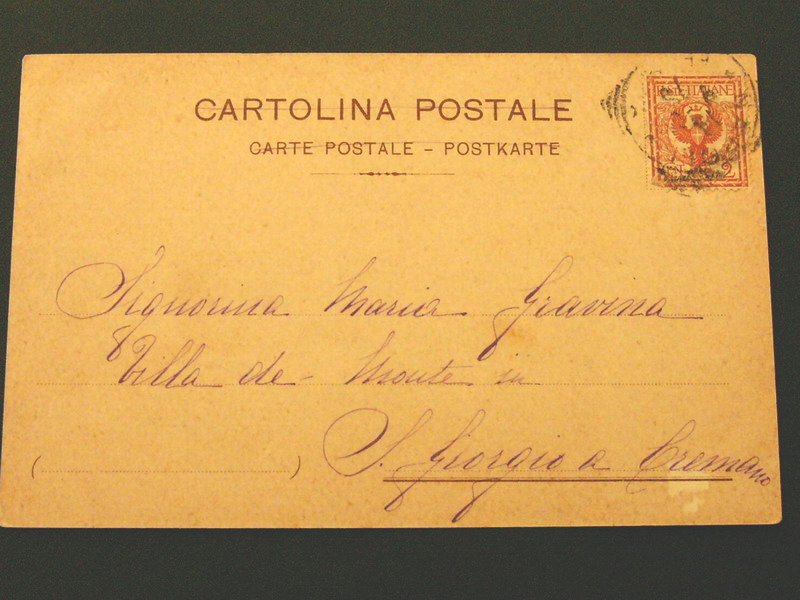 CARTOLINA POSTALE
CARTE POSTALE - POSTKARTE
POSTE ITALIANE
2
Signorina Maria Gravina
Villa de- Monte in
S. Giorgio a Cremano
( )